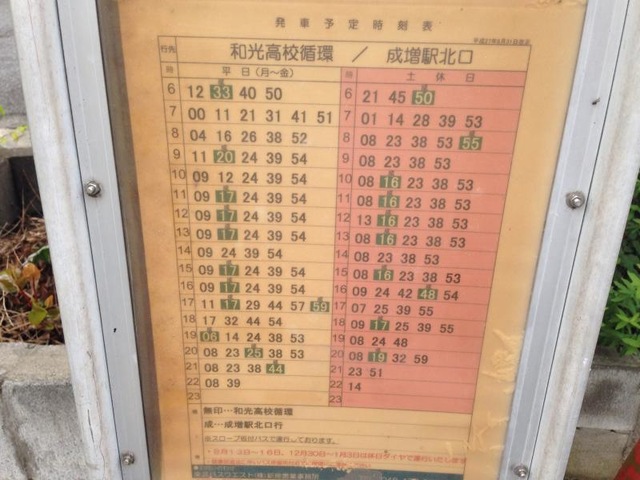 発車予定時刻表
平成27年8月31日改正
行先 和光高校循環 / 成増駅北口
時 平日(月~金) 時 土休日
6 12 33 40 50 6 21 45 50
7 00 11 21 31 41 51 7 01 14 28 39 53
8 04 16 26 38 52 8 08 23 38 53 55
9 11 20 24 39 54 9 08 23 38 53
10 09 12 24 39 54 10 08 16 23 38 53
11 09 17 24 39 54 11 08 16 23 38 53
12 09 17 24 39 54 12 13 16 23 38 53
13 09 17 24 39 54 13 08 16 23 38 53
14 09 24 39 54 14 08 23 38 53
15 09 17 24 39 54 15 08 16 23 38 53
16 09 17 24 39 54 16 09 24 42 48 54
17 11 17 29 44 57 59 17 07 25 39 55
18 17 32 44 54 18 09 17 25 39 55
19 06 14 24 38 53 19 08 24 48
20 08 23 25 38 53 20 08 19 32 59
21 08 23 38 44 21 23 51
22 08 39 22 14
23 23
無印…和光高校循環
成…成増駅北口行
※スロープ板付バスで運行しております。
・8月13日~16日、12月30日~1月3日は休日ダイヤで運行いたします